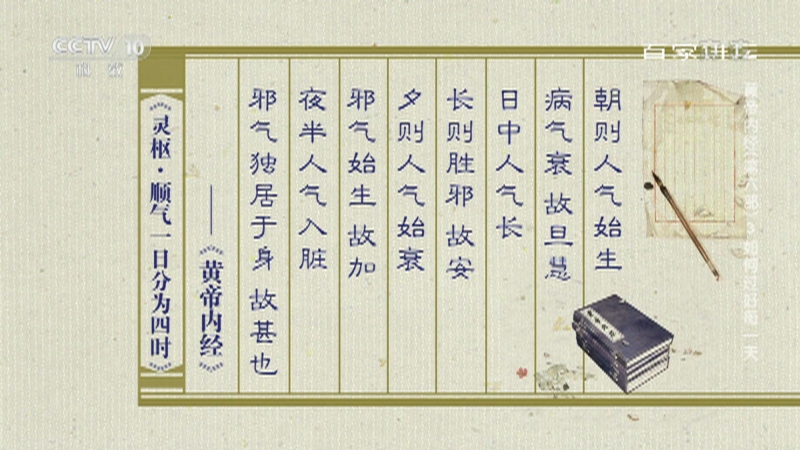 CCTV 10
科教
百家讲坛
朝则人气始生
病气衰 故旦慧
日中人气长
长则胜邪 故安
夕则人气始衰
邪气始生 故加
夜半人气入脏
邪气独居于身 故甚也
——《黄帝内经》
《灵枢·顺气一日分为四时》